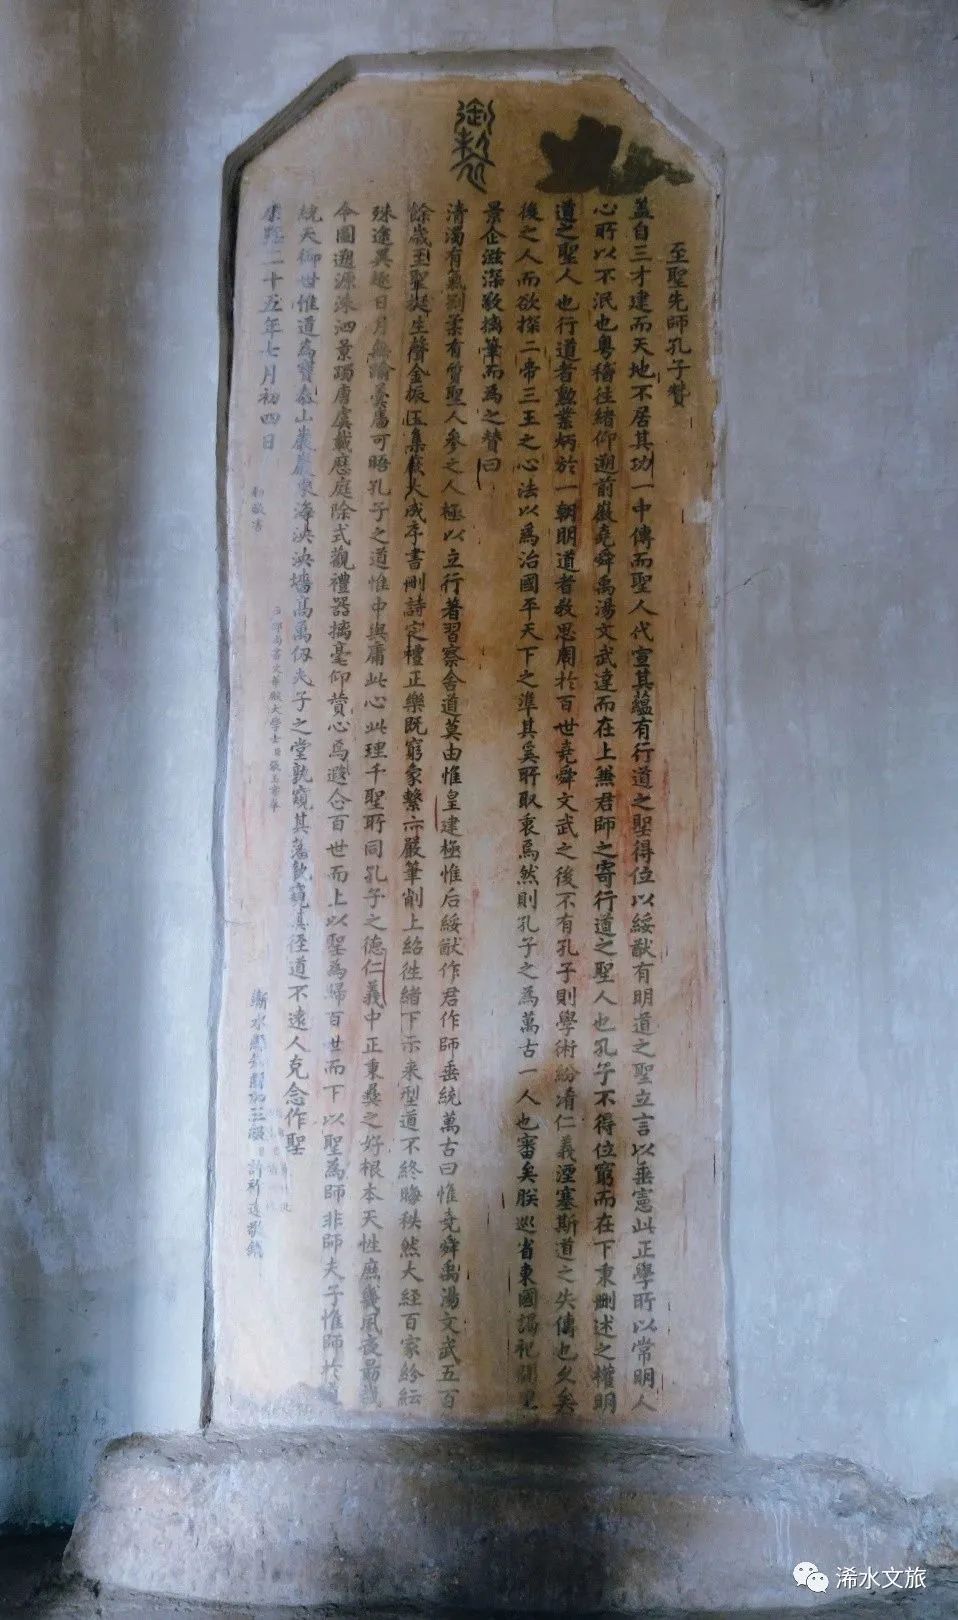 御製
至聖先師孔子贊
蓋自三才建而天地不居其功一中傳而聖人代宣其蘊有行道之聖得位以綏猷有明道之聖立言以垂憲此正學所以常明人
心所以不泯也粵稽往緒仰遡前徽堯舜禹湯文武達而在上兼君師之寄行道之聖人也孔子不得位窮而在下秉刪述之權明
道之聖人也行道者勳業炳於一朝明道者教思周於百世堯舜文武之後不有孔子則學術紛淆仁義湮塞斯道之失傳也久矣
後之人而欲探二帝三王之心法以為治國平天下之準其奚所取衷焉然則孔子之為萬古一人也審矣朕巡省東國謁祀闕里
景企滋深敬摛筆而為之贊曰
清濁有氣剛柔有質聖人參之人極以立行著習察舍道莫由惟皇建極惟后綏猷作君作師垂統萬古曰惟堯舜禹湯文武五百
餘歲至聖挺生聲金振玉集厥大成序書刪詩定禮正樂既窮象繫亦嚴筆削上紹往緒下示來型道不終晦秩然大經百家紛紜
殊途異趣日月無踰羹牆可晤孔子之道惟中與庸此心此理千聖所同孔子之德仁義中正秉彝之好根本天性庶幾夙夜勗哉
令圖遡源洙泗景躅唐虞載歷庭除式觀禮器摛毫仰贊心焉遐企百世而上以聖為歸百世而下以聖為師非師夫子惟師於道
統天御世惟道為寶泰山巖巖東海泱泱墻高萬仞夫子之堂孰窺其藩孰窺其徑道不遠人克念作聖
康熙二十五年七月初四日
敬書
尚書文華殿大學士臣張玉書奉
蘄水